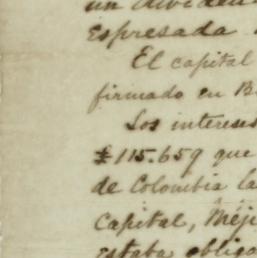 un dividen
Espresada
El capital
firmado en B
Los interese
£115.659 que
de Colombia la
Capital, Méji
estaba obliga